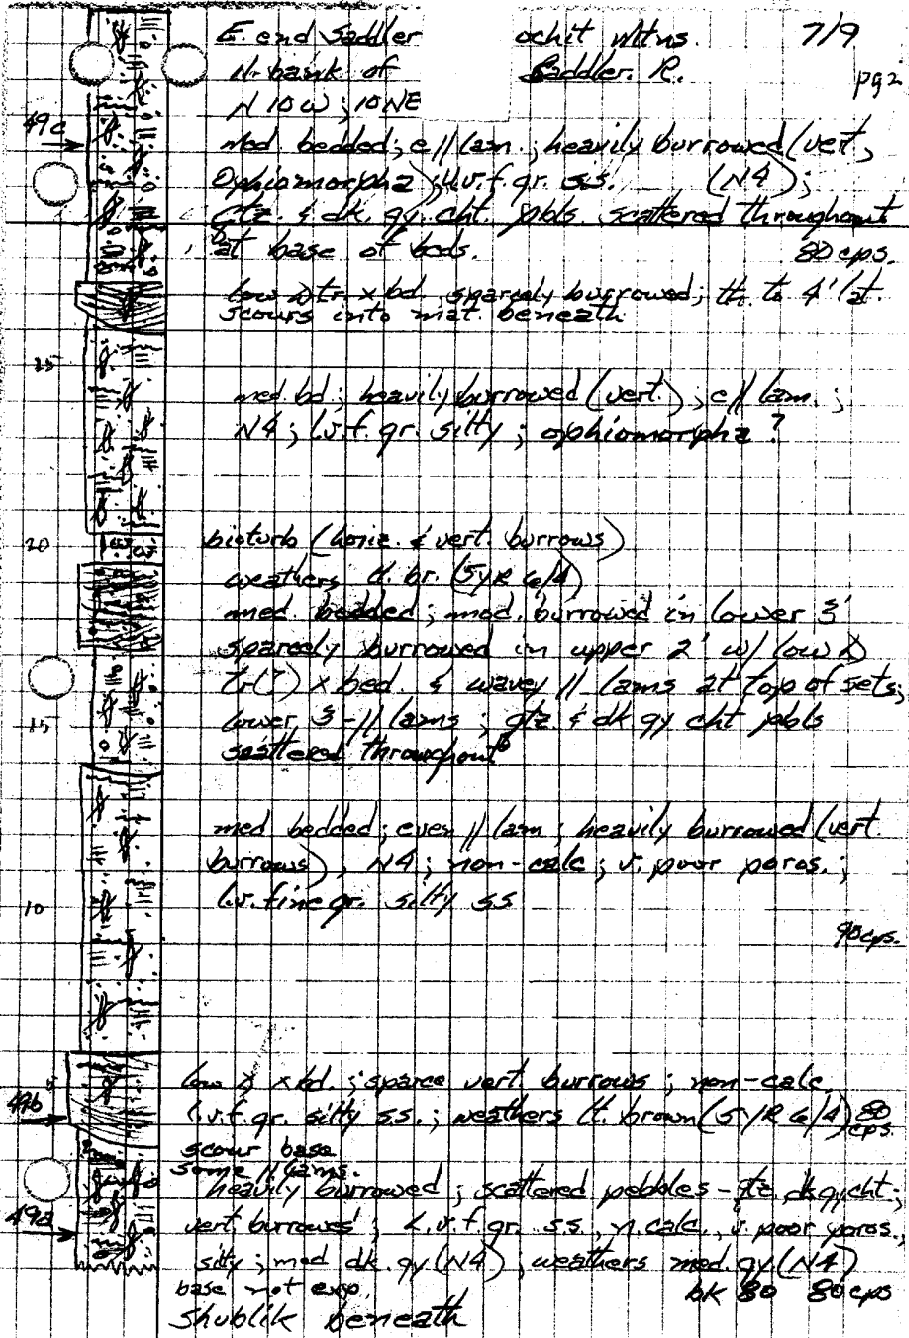 E end Saddler ochit Mtns. 7/9
N. bank of Saddler. R. pg 2
N 10 W ; 10 NE
49c
med. bedded; e // lam.; heavily burrowed (vert,
Ophiomorpha); U.v.f. gr. s.s. (N4);
qtz. & dk. gy. cht. pbls. scattered throughout
& at base of beds. 80 cps.
low ∠ tr. x bd sparcely burrowed; th. to 4' lat.
scours into mat. beneath
25
med. bd; heavily burrowed (vert.), e // lam.;
N4; l.v.f. gr. silty; ophiomorpha?
20
bioturb (horiz. & vert. burrows)
weathers lt. br. (5YR 6/4)
med. bedded; mod. burrowed in lower 3'
sparcely burrowed in upper 2' w/ low ∠
tr(?) x bed. & wavey // lams at top of sets;
15
lower 3 - // lams; qtz & dk gy cht pbls
scattered throughout
med bedded; even // lam; heavily burrowed (vert
burrows), N4; non-calc; v. poor poros.;
10
l.v. fine gr. silty ss
90 cps.
low ∠ x bd.; sparce vert. burrows; non-calc,
49b
l.v.f. gr. silty s.s.; weathers lt. brown (5YR 6/4) 80 cps.
scour base
some // lams.
heavily burrowed; scattered pebbles - qtz. dk gy cht;
49a
vert burrows; l.v.f. gr. s.s., n. calc., v. poor poros.,
silty; med dk. gy (N4); weathers med. gy (N4)
base not exp. bk 80 80 cps
Shublik beneath